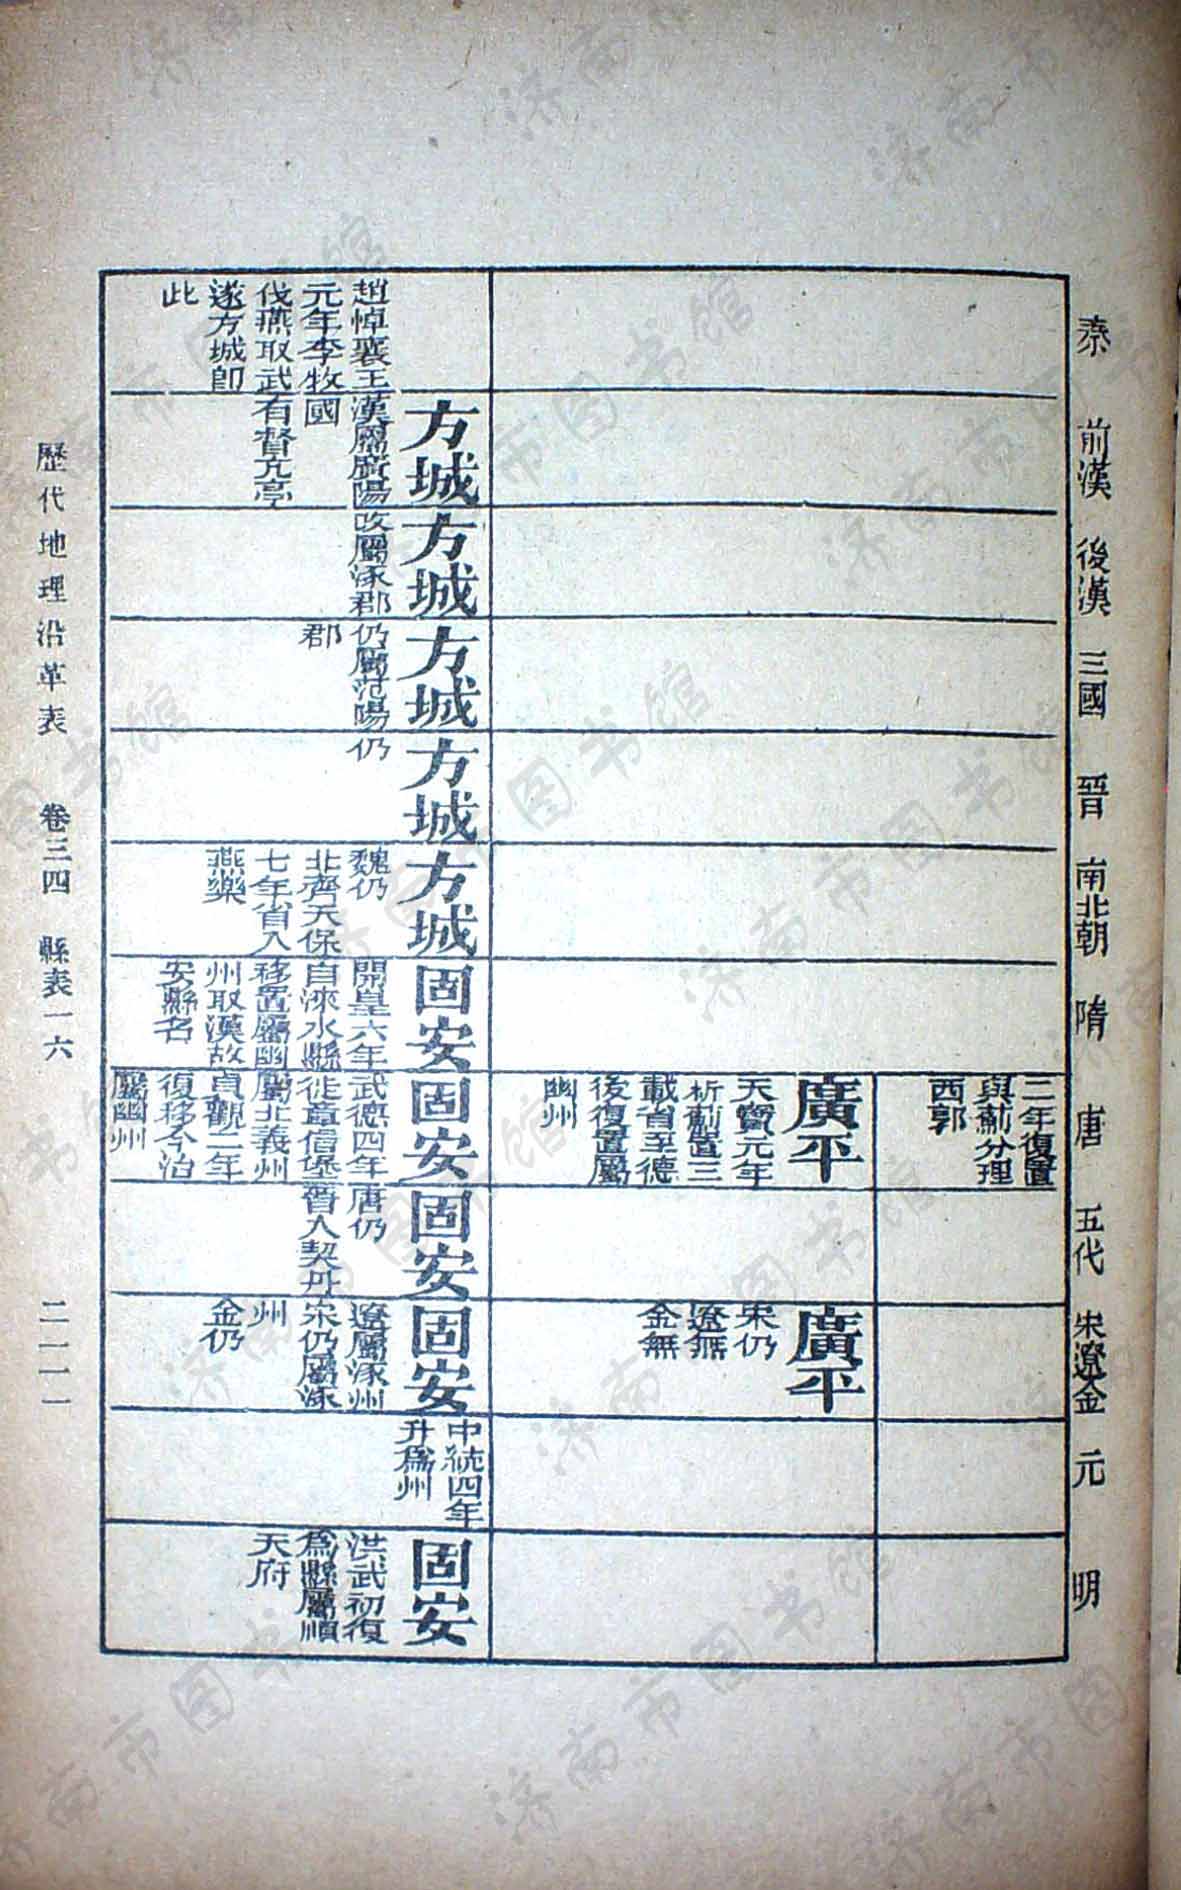 秦
前漢
後漢
三國
晉
南北朝
隋
唐
五代
宋遼金
元
明
二年復置
與薊分理
西郭
廣平
天寶元年
析薊置三
載省至德
後復置屬
幽州
廣平
宋仍
遼無
金無
趙悼襄王
元年李牧
伐燕取武
遂方城即
此
方城
漢屬廣陽
國
有督亢亭
方城
改屬涿郡
方城
仍屬范陽
郡
方城
仍
方城
魏仍
北齊天保
七年省入
燕樂
固安
開皇六年
自淶水縣
移置屬幽
州取漢故
安縣名
固安
武德四年
徙章信堡
屬北義州
貞觀二年
復移今治
屬幽州
固安
唐仍
晉入契丹
固安
遼屬涿州
宋仍屬涿
州
金仍
中統四年
升爲州
固安
洪武初復
爲縣屬順
天府
歷代地理沿革表 卷三四 縣表一六 二一一一
济南市图书馆